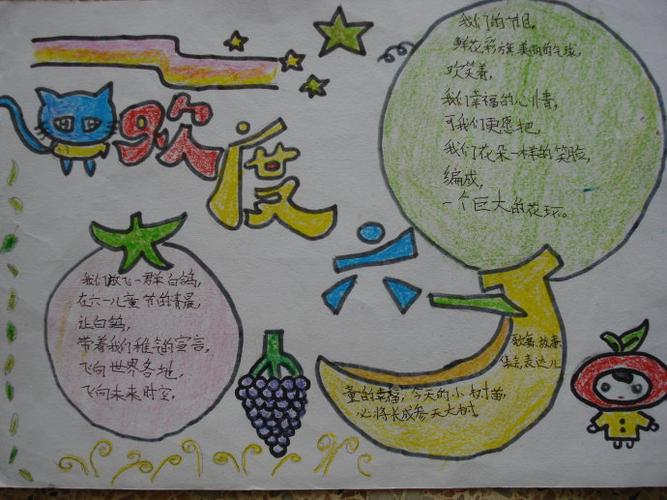 欢度六一
我们的节日,
鲜花彩旗美丽的气球,
欢笑着,
我们幸福的心情,
可我们更愿把,
我们花朵一样的笑脸,
编成,
一个巨大的花环。
我们放飞一群白鸽,
在六一儿童节的清晨,
让白鸽,
带着我们稚气的宣言,
飞向世界各地,
飞向未来时空。
歌舞、故事
集会,表达儿
童的幸福,今天的小树苗,
必将长成参天大树。